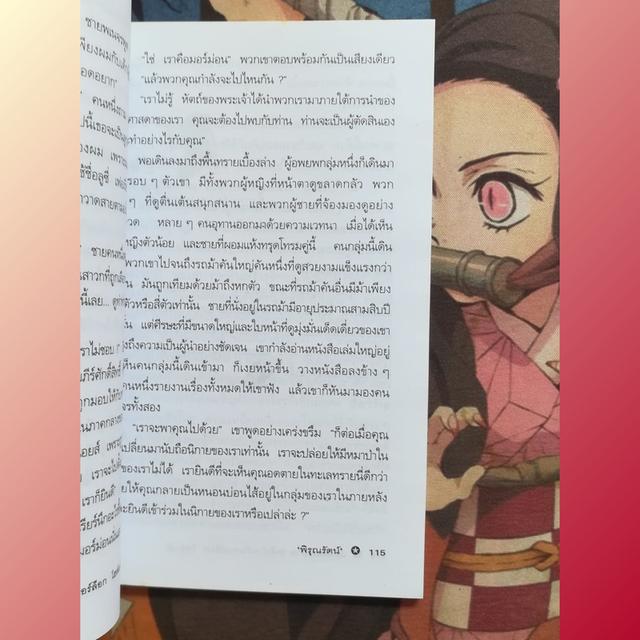 ชายพเนจรพูด
พียงผมกับเด็
อดอยาก"
คนหนึ่งถาม
ปนี้เธอจะเป็นลูก
องผม เพราะ
ช้ชื่อลูซี่ เฟ
าวาดสายตา
ชายคนหนึ่
สาวกที่ถูกเลือก
นี้เลย... ดู
ราไม่ชอบ
ภีร์ศักดิ์สิทธิ์
ถูกมอบให้กับ
นภาคกลาง
อยส์ เพราะ
เราจะไป
เราก็ยินดี
อร์ล็อก โฮล
"ใช่ เราคือมอร์ม่อน" พวกเขาตอบพร้อมกันเป็นเสียงเดียว
"แล้วพวกคุณกำลังจะไปไหนกัน ?"
"เราไม่รู้ หัตถ์ของพระเจ้าได้นำพวกเรามาภายใต้การนำของ
ศาสดาของเรา คุณจะต้องไปพบกับท่าน ท่านจะเป็นผู้ตัดสินเอง
ะทำอย่างไรกับคุณ"
พอเดินลงมาถึงพื้นทรายเบื้องล่าง ผู้อพยพกลุ่มหนึ่งก็เดินมา
รอบ ๆ ตัวเขา มีทั้งพวกผู้หญิงที่หน้าตาดูขลาดกลัว พวก
ๆ ที่ดูตื่นเต้นสนุกสนาน และพวกผู้ชายที่จ้องมองดูอย่าง
วด หลาย ๆ คนอุทานออกมาด้วยความเวทนา เมื่อได้เห็น
หญิงตัวน้อย และชายที่ผอมแห้งทรุดโทรมคู่นี้ คนกลุ่มนี้เดิน
พวกเขาไปจนถึงรถม้าคันใหญ่คันหนึ่งที่ดูสวยงามแข็งแรงกว่า
น มันถูกเทียมด้วยม้าถึงหกตัว ขณะที่รถม้าคันอื่นมีม้าเพียง
ตัวหรือสี่ตัวเท่านั้น ชายที่นั่งอยู่ในรถม้ามีอายุประมาณสามสิบปี
น แต่ศีรษะที่มีขนาดใหญ่และใบหน้าที่ดูมุ่งมั่นเด็ดเดี่ยวของเขา
งถึงความเป็นผู้นำอย่างชัดเจน เขากำลังอ่านหนังสือเล่มใหญ่อยู่
ห็นคนกลุ่มนี้เดินเข้ามา ก็เงยหน้าขึ้น วางหนังสือลงข้าง ๆ
คนหนึ่งรายงานเรื่องทั้งหมดให้เขาฟัง แล้วเขาก็หันมามองคน
จรทั้งสอง
"เราจะพาคุณไปด้วย" เขาพูดอย่างเคร่งขรึม "ก็ต่อเมื่อคุณ
เปลี่ยนมานับถือนิกายของเราเท่านั้น เราจะปล่อยให้มีหมาป่าใน
ของเราไม่ได้ เรายินดีที่จะเห็นคุณอดตายในทะเลทรายนี่ดีกว่า
ยให้คุณกลายเป็นหนอนบ่อนไส้อยู่ในกลุ่มของเราในภายหลัง
ะยินดีเข้าร่วมในนิกายของเราหรือเปล่าล่ะ ?"
'พิรุณรัตน์' ✪ 115